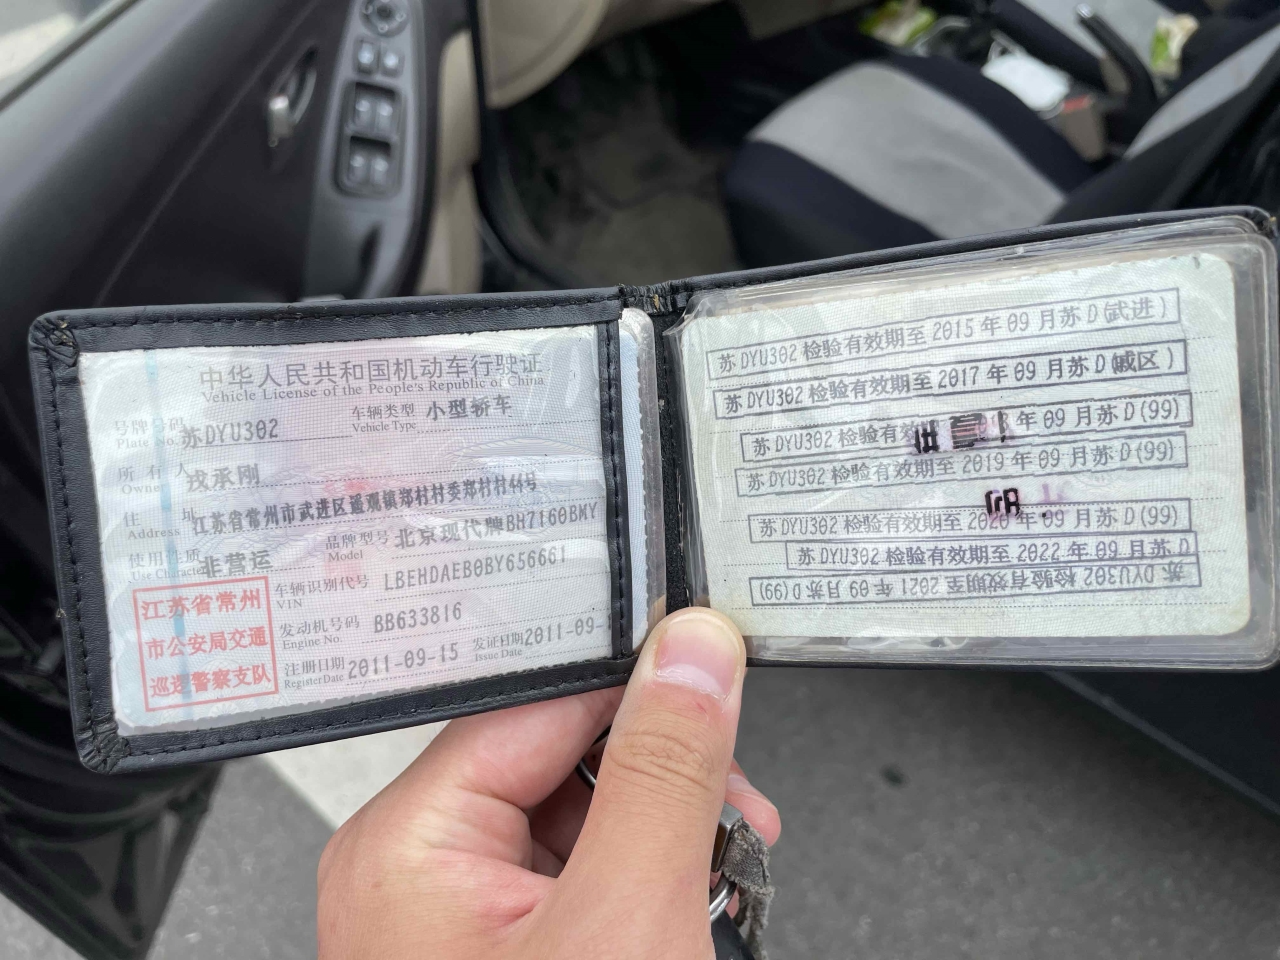 中华人民共和国机动车行驶证
Vehicle License of the People's Republic of China
号牌号码 苏DYU302 车辆类型 小型轿车
Plate No. Vehicle Type
所有人 戎承刚
Owner
住址 江苏省常州市武进区遥观镇郑村村委郑村村44号
Address
使用性质 非营运 品牌型号 北京现代牌BH7160BMY
Use Character Model
车辆识别代号 LBEHDAEB0BY656661
VIN
发动机号码 BB633816
Engine No.
注册日期 2011-09-15 发证日期 2011-09-
Register Date Issue Date
江苏省常州
市公安局交通
巡逻警察支队
苏DYU302 检验有效期至 2015 年 09 月苏 D(武进)
苏DYU302 检验有效期至 2017 年 09 月苏 D(城区)
苏DYU302 检验有效 年 09 月苏 D(99)
苏DYU302 检验有效期至 2019 年 09 月苏 D(99)
苏DYU302 检验有效期至 2020 年 09 月苏 D(99)
苏DYU302 检验有效期至 2022 年 09 月苏 D
苏DYU302 检验有效期至 2021 年 09 月苏 D(99)